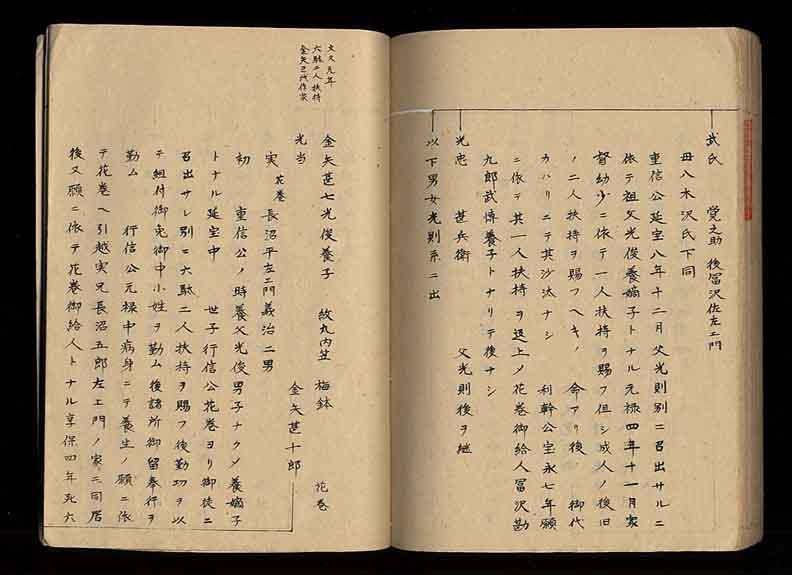 武氏　覚之助 後冨沢佐左エ門
母八木沢氏下同
重信公延宝八年十二月父光則別ニ召出サルニ
依テ祖父光俊養嫡子トナル元禄四年十一月家
督幼少ニ依テ一人扶持ヲ賜フ但シ成人ノ後旧
ノ二人扶持ヲ賜フヘキノ　命アリ後ノ　御代
カハリニテ其沙汰ナシ　利幹公宝永七年願
ニ依テ其一人扶持ヲ返上ノ花巻御給人冨沢勘
九郎武博養子トナリテ後ナシ
光忠　甚兵衛　父光則後ヲ継
以下男女光則系ニ出
文久元年
六駄二人扶持
金矢
金矢甚七光俊養子　紋丸内笠　梅鉢　花巻
光当　金矢甚十郎
実花巻長沼平左エ門義治二男
初　重信公ノ時養父光俊男子ナクメ養嫡子
トナル延宝中　世子行信公花巻ヨリ御徒ニ
召出サレ別ニ六駄二人扶持ヲ賜フ後勤功ヲ以
テ組付御免御中小姓ヲ勤ム後諸所御留奉行ヲ
勤ム　行信公元禄中病身ニテ養生ノ願ニ依
テ花巻ヘ引越実兄長沼五郎左エ門ノ家ニ同居
後又願ニ依テ花巻御給人トナル享保四年死六